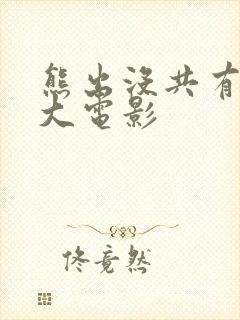 熊出没共有
大电影
佟竟然